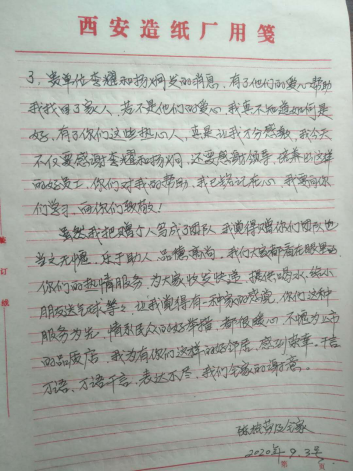 西安造纸厂用笺
3、贵单位李耀和杨炯发的消息，有了他们的爱心帮助
我找回了家人，若不是他们的爱心，我真不知道如何是
好，有了你们这些热心人，真是让我万分感激，我今天
不仅要感谢李耀和杨炯，还要感谢领导，培养出这样
的好员工，你们对我的帮助，我已铭记在心，我要向你
们学习，向你们致敬！
虽然我把赠个人写成了团队，我觉得赠你们团队也
当之无愧，乐于助人，品德高尚，我们大家都看在眼里的
你们的热情服务，为大家收发快递，提供喝水，给小
朋友送气球等等，让我觉得有一种家的感觉，你们这种
服务为先，情系民众的好举措，都很暖心，不愧为上市
的品质店，我为有你们这样的好邻居，感到荣幸。千言
万语，万语千言，表达不尽，我们全家的谢意。
全家
2020年9.3号
第 页
装订线